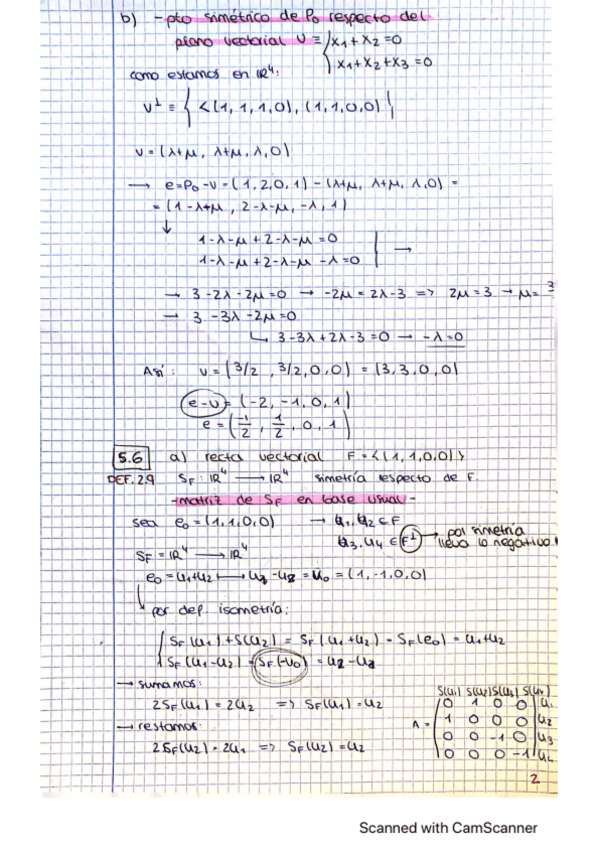 b) - pto simétrico de P₀ respecto del
plano vectorial U ≡ { x₁ + x₂ = 0
x₁ + x₂ + x₃ = 0
como estamos en ℝ⁴:
U^⊥ ≡ { <(1, 1, 1, 0), (1, 1, 0, 0)}
v = (λ+μ, λ+μ, λ, 0)
→ e = P₀ - v = (1, 2, 0, 1) - (λ+μ, λ+μ, λ, 0) =
= (1 - λ+μ, 2 - λ - μ, -λ, 1)
↓
1 - λ - μ + 2 - λ - μ = 0
1 - λ - μ + 2 - λ - μ - λ = 0 | →
→ 3 - 2λ - 2μ = 0 → -2μ = 2λ - 3 => 2μ = 3 → μ = 3
→ 3 - 3λ - 2μ = 0
↳ 3 - 3λ + 2λ - 3 = 0 → -λ = 0
Así: v = (3/2, 3/2, 0, 0) = (3, 3, 0, 0)
e - v = (-2, -1, 0, 1)
e = (-1/2, 1/2, 0, 1)
5.6 a) recta vectorial F = <(1, 1, 0, 0)>
DEF. 2.9 S_F : ℝ⁴ → ℝ⁴ simetría respecto de F.
- matriz de S_F en base usual -
sea e₀ = (1, 1, 0, 0) → u₁, u₂ ∈ F
u₃, u₄ ∈ F^⊥ → por simetría
lleva lo negativo!
S_F = ℝ⁴ → ℝ⁴
e₀ = u₁ + u₂ ↦ u₂ - u₂ = u₀ = (1, -1, 0, 0)
por def. isometría:
{ S_F(u₁) + S(u₂) = S_F(u₁ + u₂) = S_F(e₀) = u₁ + u₂
S_F(u₁ - u₂) = S_F(-u₀) = u₂ - u₂
→ sumamos:
2S_F(u₁) = 2u₂ => S_F(u₁) = u₂
→ restamos:
2S_F(u₂) = 2u₁ => S_F(u₂) = u₂
S(u₁) S(u₂) S(u₃) S(u₄)
0 1 0 0 | u₁
A = 1 0 0 0 | u₂
0 0 -1 0 | u₃
0 0 0 -1 | u₄
2
Scanned with CamScanner